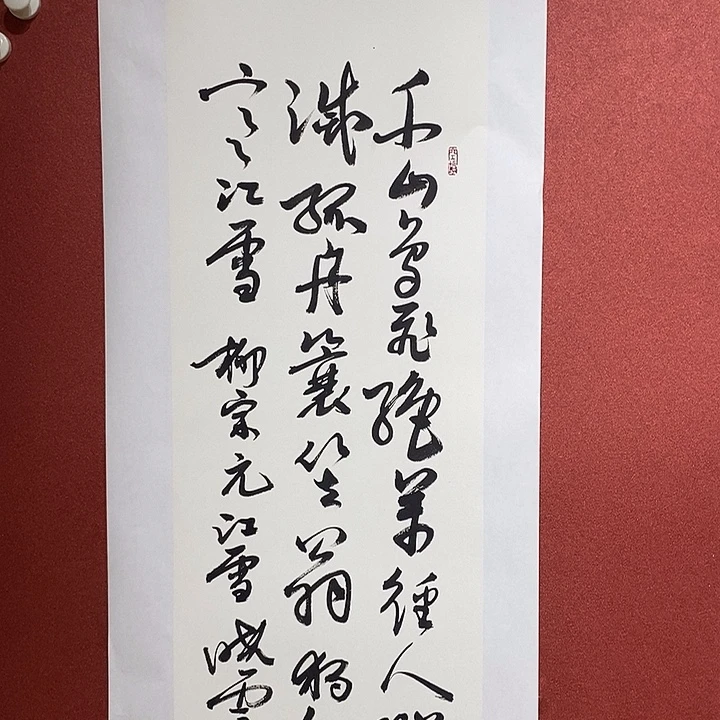 千山鳥飛絕萬徑人
滅孤舟蓑笠翁獨
寒江雪 柳宗元江雪 曉雲